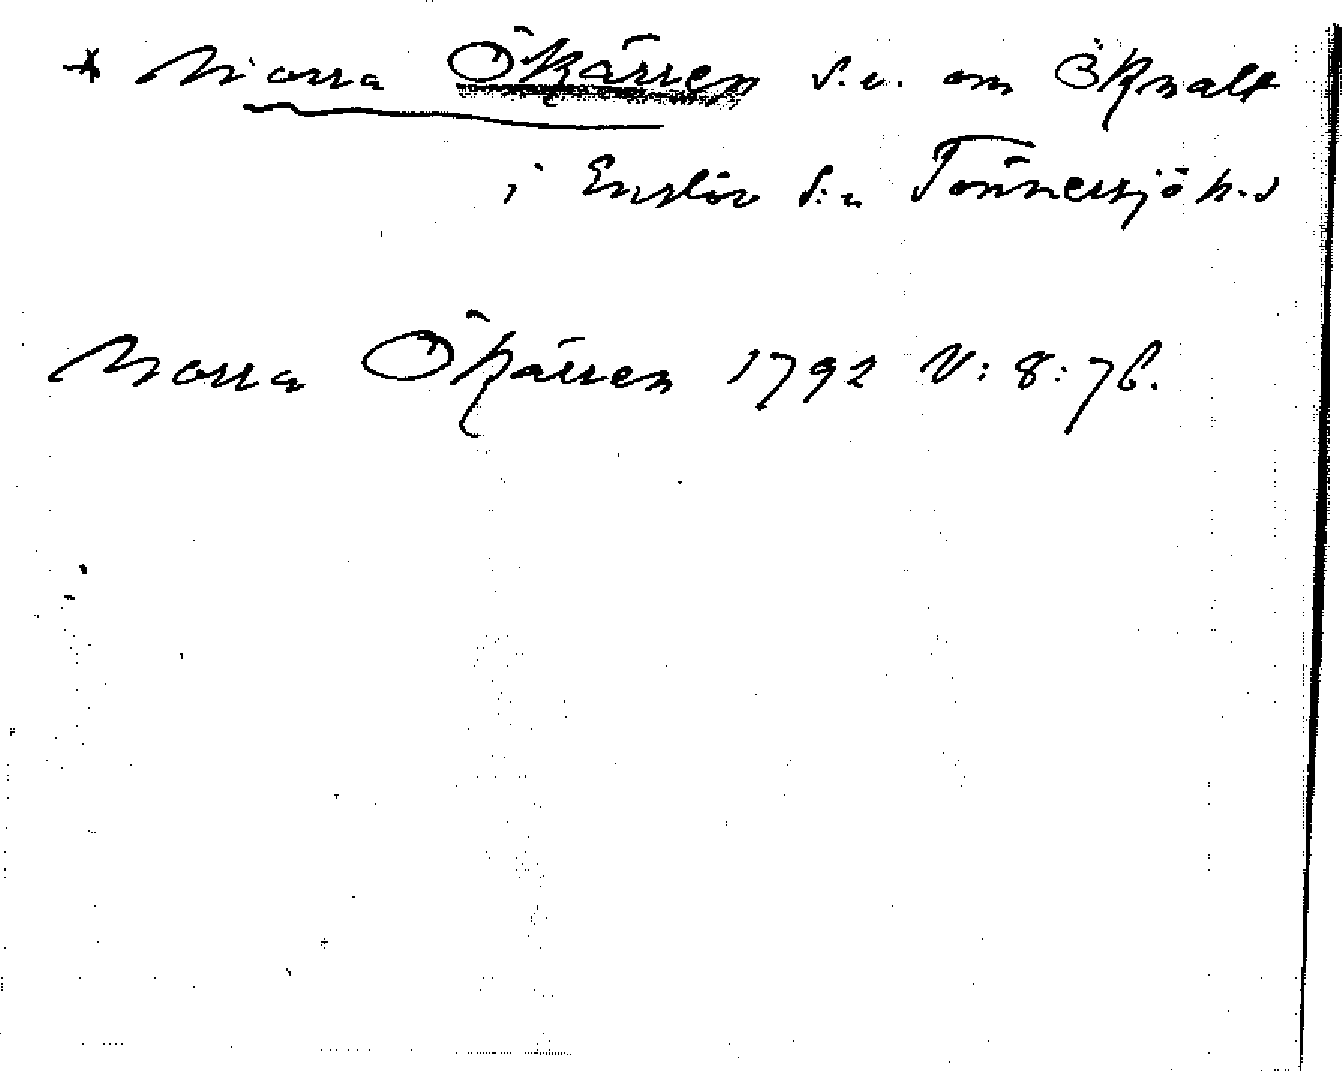 * Norra Ökärren s.v. om Öknalt
i Enslöv s:n Tönnersjö h.d
Norra Ökärren 1792 V:8:76.